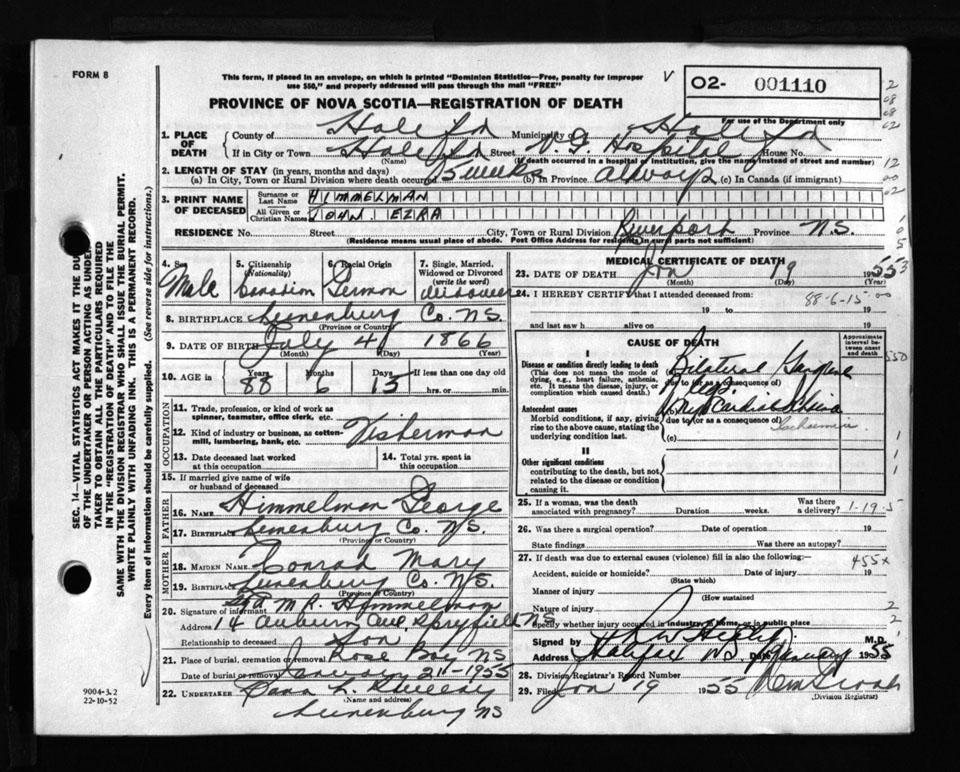 FORM 8
This form, if placed in an envelope, on which is printed "Dominion Statistics—Free, penalty for improper
use $50," and properly addressed will pass through the mail "FREE"
02- 001110
For use of the Department only
PROVINCE OF NOVA SCOTIA—REGISTRATION OF DEATH
1. PLACE OF DEATH
County of Halifax Municipality of Halifax
If in City or Town Halifax Street V.G. Hospital House No.
(Name) (If death occurred in a hospital or institution, give the name instead of street and number)
2. LENGTH OF STAY (in years, months and days)
(a) In City, Town or Rural Division where death occurred 5 weeks (b) In Province always (c) In Canada (if immigrant)
3. PRINT NAME OF DECEASED
Surname or Last Name HIMMELMAN
All Given or Christian Names JOHN. EZRA
RESIDENCE No. Street City, Town or Rural Division Riverport Province N.S.
(Residence means usual place of abode. Post Office Address for residents in rural parts not sufficient)
4. Sex Male
5. Citizenship (Nationality) Canadian
6. Racial Origin German
7. Single, Married, Widowed or Divorced (write the word) Widower
8. BIRTHPLACE Lunenburg Co. N.S.
(Province or Country)
9. DATE OF BIRTH July 4 1866
(Month) (Day) (Year)
10. AGE in Years 88 Months 6 Days 15 If less than one day old
hrs. or min.
OCCUPATION
11. Trade, profession, or kind of work as
spinner, teamster, office clerk, etc.
Fisherman
12. Kind of industry or business, as cotton-
mill, lumbering, bank, etc.
13. Date deceased last worked
at this occupation
14. Total yrs. spent in
this occupation
15. If married give name of wife
or husband of deceased
FATHER
16. Name Himmelman George
17. Birthplace Lunenburg Co. N.S.
(Province or Country)
MOTHER
18. Maiden Name Conrad Mary
19. Birthplace Lunenburg Co. N.S.
(Province or Country)
20. Signature of informant M R. Himmelman
Address 14 Auburn Ave, Spryfield N S
Relationship to deceased Son
21. Place of burial, cremation or removal Rose Bay NS
Date of burial or removal January 21-1955
22. UNDERTAKER
(Name and address)
Lunenburg NS
9004-3.2
22-10-52
MEDICAL CERTIFICATE OF DEATH
23. DATE OF DEATH Jan 19 1955
(Month) (Day)
24. I HEREBY CERTIFY that I attended deceased from:
88-6-15
19 to 19
and last saw h alive on 19
CAUSE OF DEATH
Approximate interval between onset and death
I
Disease or condition directly leading to death
(This does not mean the mode of
dying, e.g., heart failure, asthenia,
etc. It means the disease, injury, or
complication which caused death.)
Bilateral Gangrene
due to (or as a consequence of)
legs.
Antecedent causes
Morbid conditions, if any, giving
rise to the above cause, stating the
underlying condition last.
due to (or as a consequence of)
(c)
II
Other significant conditions
contributing to the death, but not
related to the disease or condition
causing it.
25. If a woman, was the death
associated with pregnancy? Duration weeks. Was there
a delivery?
1-19-5
26. Was there a surgical operation? Date of operation 19
State findings Was there an autopsy?
27. If death was due to external causes (violence) fill in also the following:—
455x
Accident, suicide or homicide? Date of injury 19
(State which)
Manner of injury
(How sustained
Nature of injury
Specify whether injury occurred in industry, in home, or in public place
Signed by M.D.
Address Halifax N.S. January 1955
28. Division Registrar's Record Number
29. Filed Jan 19 1955
(Division Registrar)
SEC. 14—VITAL STATISTICS ACT MAKES IT THE DU
OF THE UNDERTAKER OR PERSON ACTING AS UNDER-
TAKER TO OBTAIN ALL THE PARTICULARS REQUIRED
IN THE "REGISTRATION OF DEATH" AND TO FILE THE
SAME WITH THE DIVISION REGISTRAR WHO SHALL ISSUE THE BURIAL PERMIT.
WRITE PLAINLY WITH UNFADING INK. THIS IS A PERMANENT RECORD.
Every item of information should be carefully supplied. (See reverse side for instructions.)